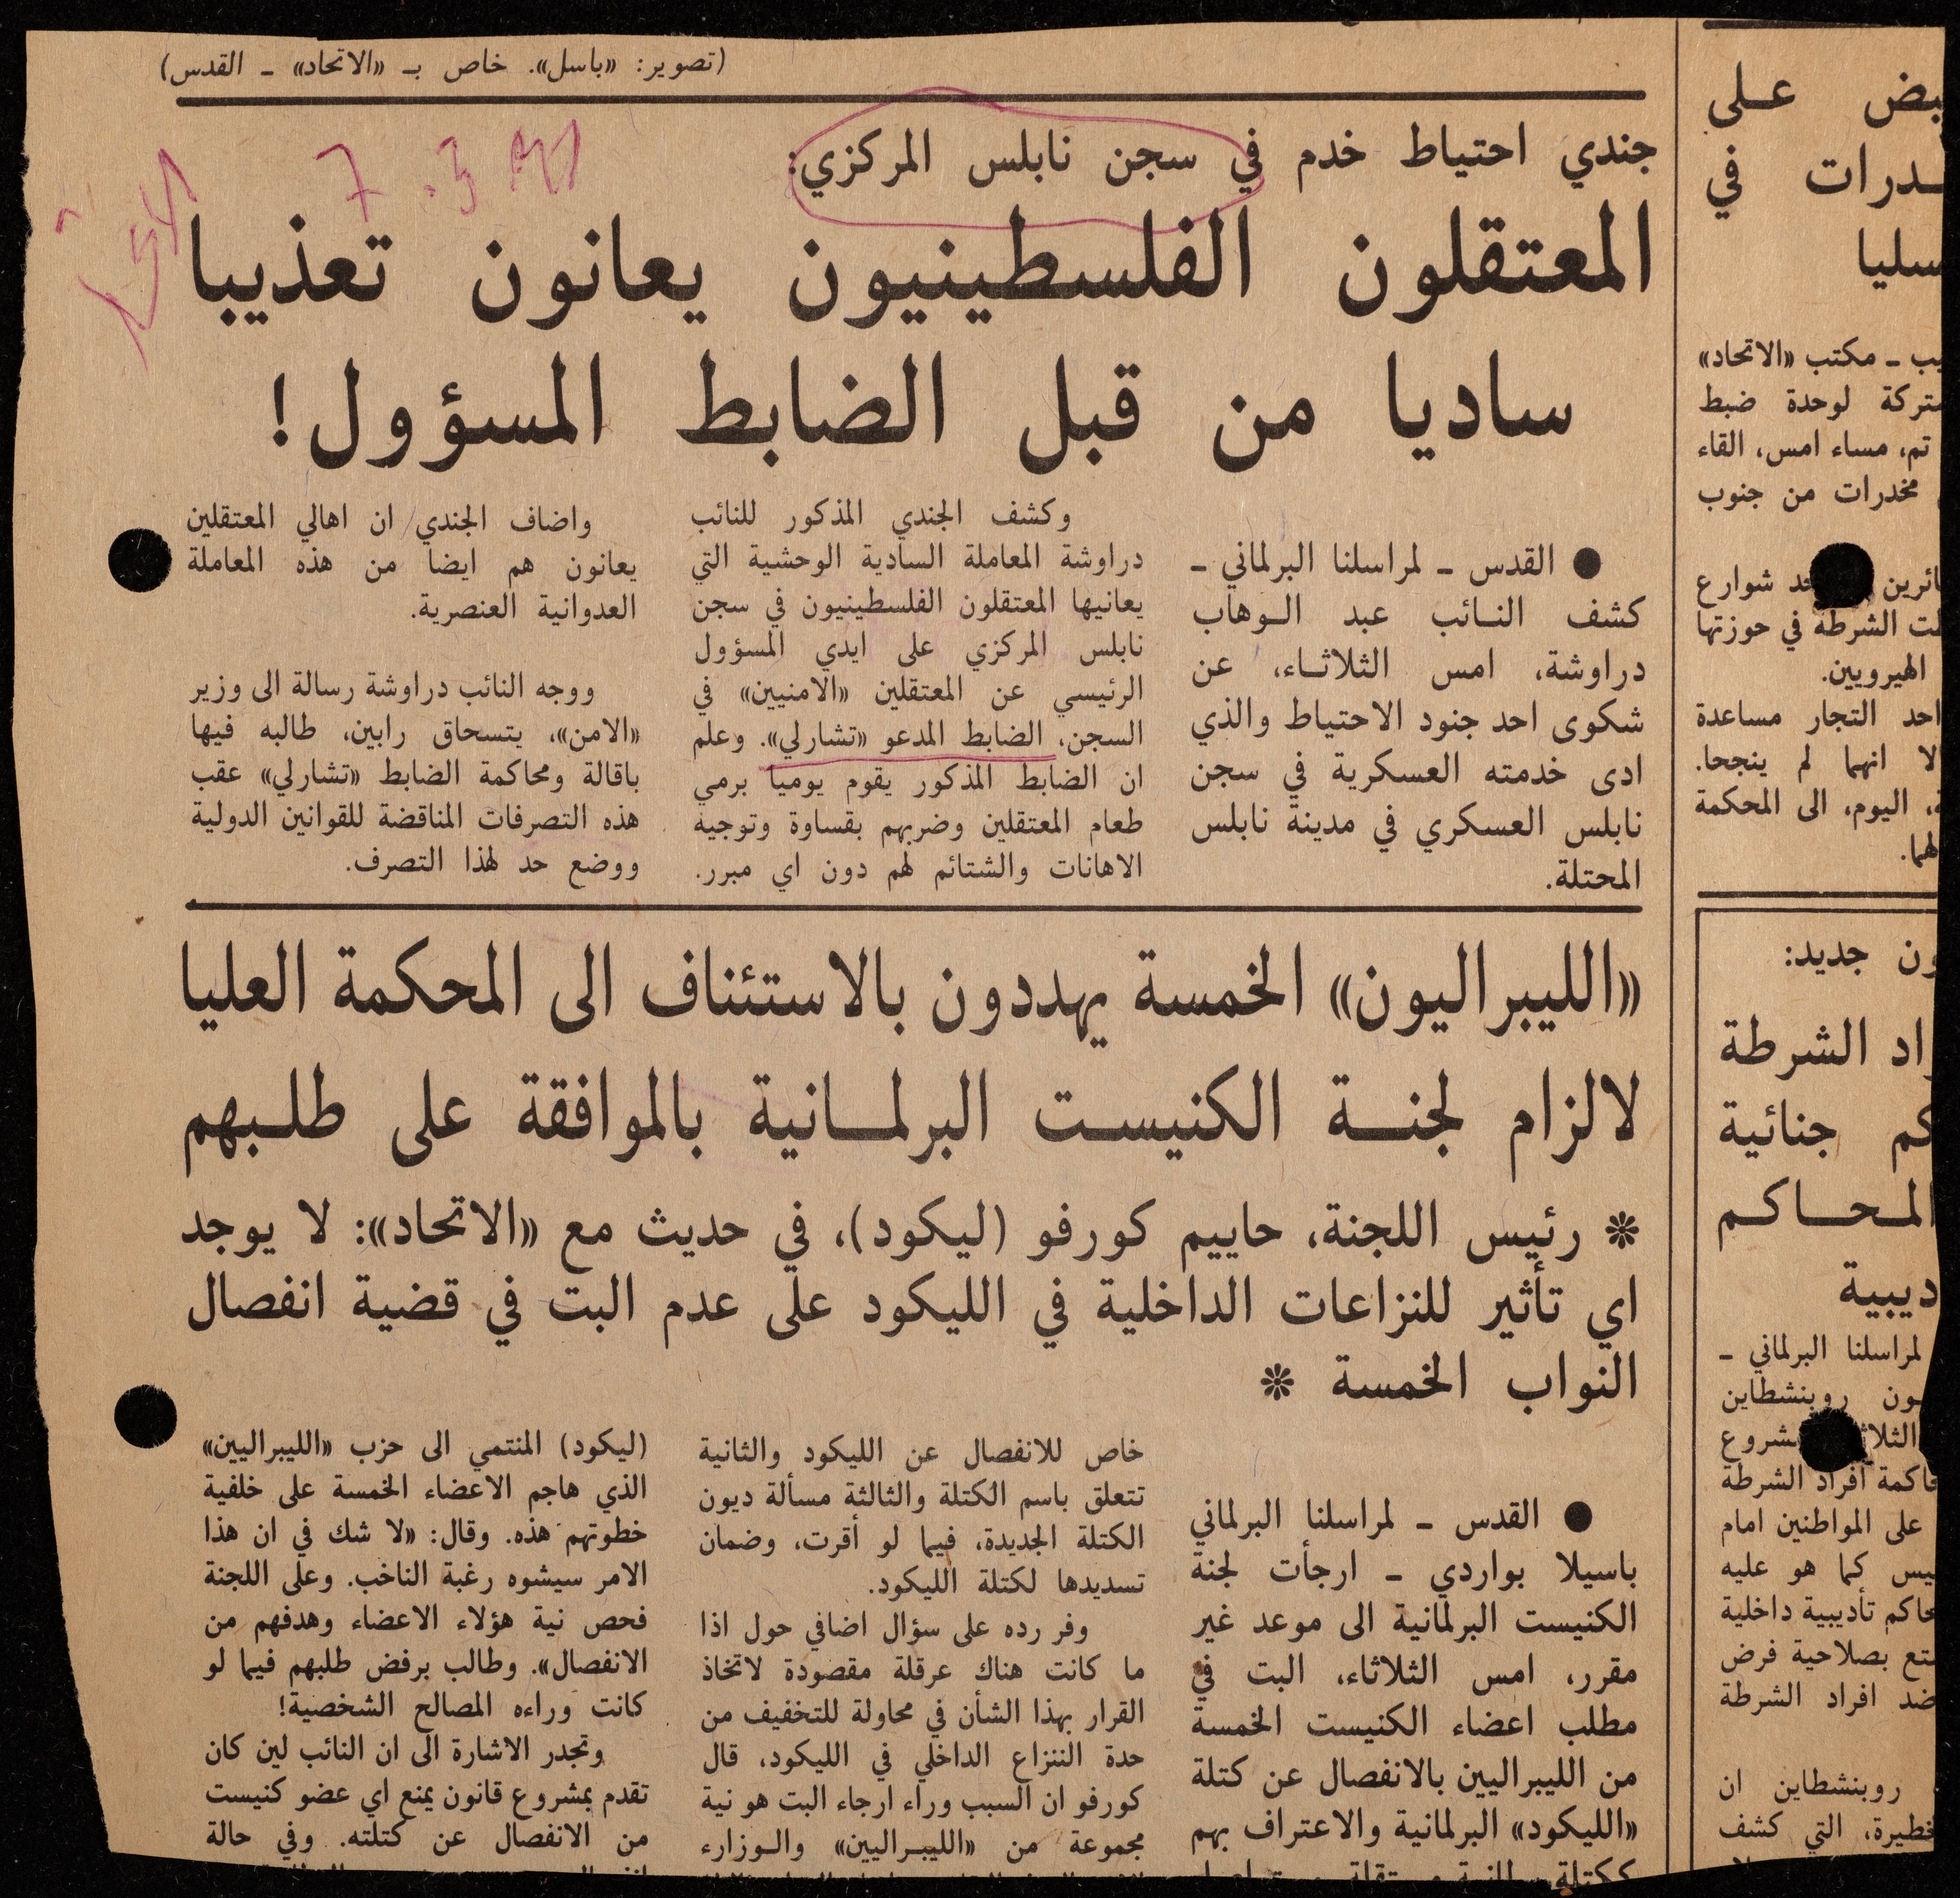 (تصوير: «باسل». خاص بـ «الاتحاد» ـ القدس)
جندي احتياط خدم في سجن نابلس المركزي:
المعتقلون الفلسطينيون يعانون تعذيبا
ساديا من قبل الضابط المسؤول!
● القدس ـ لمراسلنا البرلماني ـ
كشف النائب عبد الوهاب
دراوشة، امس الثلاثاء، عن
شكوى احد جنود الاحتياط والذي
ادى خدمته العسكرية في سجن
نابلس العسكري في مدينة نابلس
المحتلة.
وكشف الجندي المذكور للنائب
دراوشة المعاملة السادية الوحشية التي
يعانيها المعتقلون الفلسطينيون في سجن
نابلس المركزي على ايدي المسؤول
الرئيسي عن المعتقلين «الامنيين» في
السجن، الضابط المدعو «تشارلي». وعلم
ان الضابط المذكور يقوم يوميا برمي
طعام المعتقلين وضربهم بقساوة وتوجيه
الاهانات والشتائم لهم دون اي مبرر.
واضاف الجندي ان اهالي المعتقلين
يعانون هم ايضا من هذه المعاملة
العدوانية العنصرية.
ووجه النائب دراوشة رسالة الى وزير
«الامن»، يتسحاق رابين، طالبه فيها
باقالة ومحاكمة الضابط «تشارلي» عقب
هذه التصرفات المناقضة للقوانين الدولية
ووضع حد لهذا التصرف.
«الليبراليون» الخمسة يهددون بالاستئناف الى المحكمة العليا
لالزام لجنة الكنيست البرلمانية بالموافقة على طلبهم
* رئيس اللجنة، حاييم كورفو (ليكود)، في حديث مع «الاتحاد»: لا يوجد
اي تأثير للنزاعات الداخلية في الليكود على عدم البت في قضية انفصال
النواب الخمسة *
● القدس ـ لمراسلنا البرلماني
باسيلا بواردي ـ ارجأت لجنة
الكنيست البرلمانية الى موعد غير
مقرر، امس الثلاثاء، البت في
مطلب اعضاء الكنيست الخمسة
من الليبراليين بالانفصال عن كتلة
«الليكود» البرلمانية والاعتراف بهم
خاص للانفصال عن الليكود والثانية
تتعلق باسم الكتلة والثالثة مسألة ديون
الكتلة الجديدة، فيما لو أقرت، وضمان
تسديدها لكتلة الليكود.
وفر رده على سؤال اضافي حول اذا
ما كانت هناك عرقلة مقصودة لاتخاذ
القرار بهذا الشأن في محاولة للتخفيف من
حدة الننزاع الداخلي في الليكود، قال
كورفو ان السبب وراء ارجاء البت هو نية
مجموعة من «الليبراليين» والوزارء
(ليكود) المنتمي الى حزب «الليبراليين»
الذي هاجم الاعضاء الخمسة على خلفية
خطوتهم هذه. وقال: «لا شك في ان هذا
الامر سيشوه رغبة الناخب. وعلى اللجنة
فحص نية هؤلاء الاعضاء وهدفهم من
الانفصال». وطالب برفض طلبهم فيما لو
كانت وراءه المصالح الشخصية!
وتجدر الاشارة الى ان النائب لين كان
تقدم بمشروع قانون يمنع اي عضو كنيست
من الانفصال عن كتلته. وفي حالة
على
في
ـ مكتب «الاتحاد»
لوحدة ضبط
تم، مساء امس، القاء
مخدرات من جنوب
شوارع
الشرطة في حوزتها
الهيرويين.
احد التجار مساعدة
انهما لم ينجحا.
اليوم، الى المحكمة
جديد:
الشرطة
جنائية
المحاكم
لمراسلنا البرلماني ـ
روبنشطاين
افراد الشرطة
على المواطنين امام
كما هو عليه
تأديبية داخلية
بصلاحية فرض
ضد افراد الشرطة
روبنشطاين ان
التي كشف